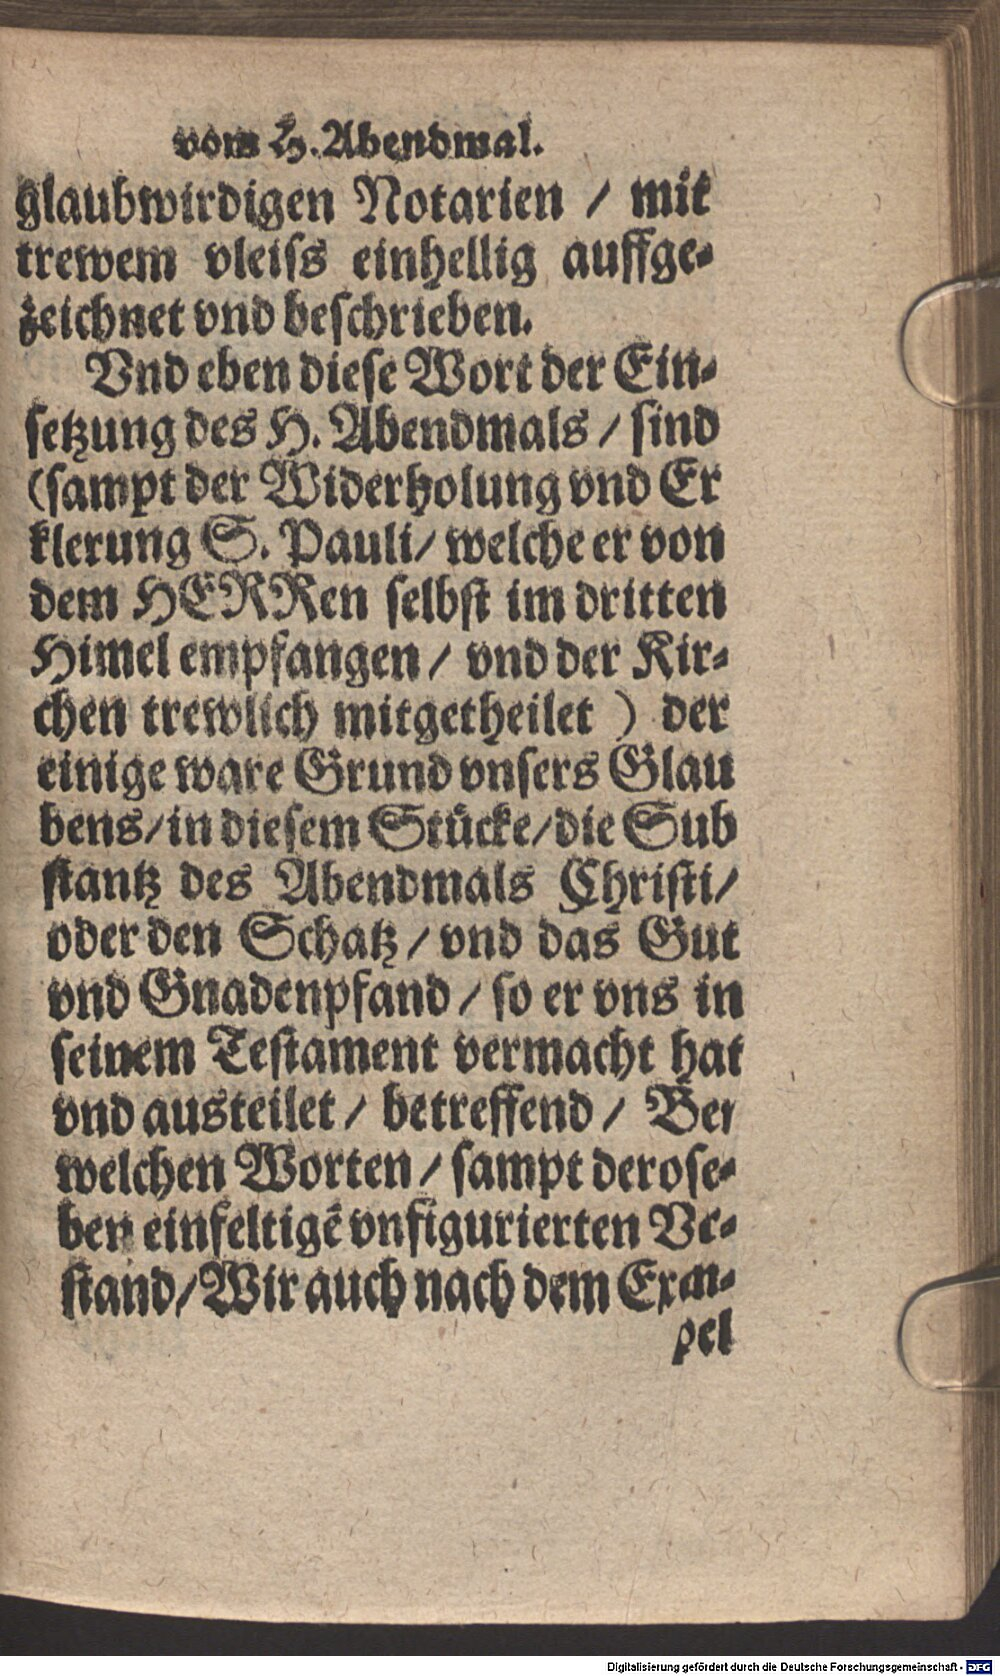 vom H. Abendmal.
glaubwirdigen Notarien / mit
trewem vleiſs einhellig auffge-
zeichnet vnd beſchrieben.
Vnd eben dieſe Wort der Ein-
ſetzung des H. Abendmals / ſind
(ſampt der Widerholung vnd Er
klerung S. Pauli / welche er von
dem HERRen ſelbſt im dritten
Himel empfangen / vnd der Kir-
chen trewlich mitgetheilet ) der
einige ware Grund vnſers Glau
bens / in dieſem Stücke / die Sub
ſtantz des Abendmals Chriſti /
oder den Schatz / vnd das Gut
vnd Gnadenpfand / ſo er vns in
ſeinem Teſtament vermacht hat
vnd austeilet / betreffend / Bey
welchen Worten / ſampt deroſe-
ben einfeltigē vnfigurierten Ve-
ſtand / Wir auch nach dem Exem-
pel
Digitalisierung gefördert durch die Deutsche Forschungsgemeinschaft - DFG